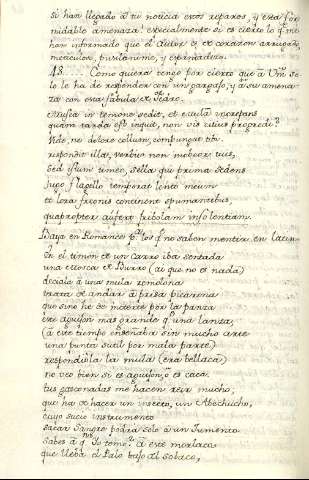 si han llegado à tu noticia estos reparos, y esta for
midable amenaza: especialmente si es cierto lo q.e me
han informado que el Autor es de corazon arrugado,
meticuloso, pusilanime, y espantadizo.
48.... Como quiera tengo por cierto que à Vm. se
lo le ha de responder con un gargajo, y à su amena-
za con esta fabula de Fedro.
Musca in temone sedit, et mulam increpans
quam tarda es? inquit, non vis citius progredi?
Vide, ne dolore collum, compungat tibi.
respondit illa, verbis non moveor tuis,
Sed istum timeo, sella qui prima sedens
Jugo flagello temperat lento meum
et lora frenis continet spumantibus,
quapropter aufer frivolam insolentiam.
Vaya en Romance p.a los q.e no saben mentir en latin
En el timon de un carro iba sentada
una mosca de Burro (ai que no es nada)
decialo à una mula remolona
trata de andar à prisa picarona
que sino he de meterte por la panza
este aguijon mas grande q.e una lanza,
(à este tiempo enseñaba sin mucho arte
una punta sutil por mala parte)
respondiòla la mula (era bellaca)
no veo bien si es aguijon, ò es caca:
tus gasconadas me hacen reir mucho,
que ha de hacer un insecto, un Abechucho,
cuyo sucio instrumento
sacar sangre podrà solo à un Jumento
Sabes à q.n Io teme? à este morlaco
que lleba el palo bajo del sobaco,